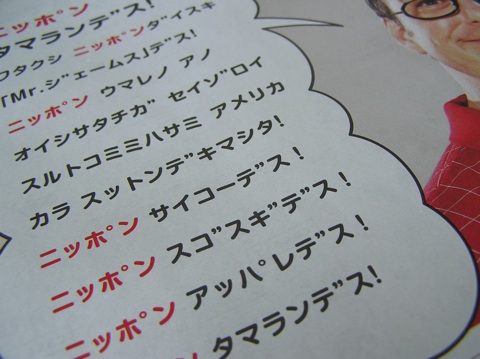 ニッポン
タマランデス!
ワタクシ ニッポンダイスキ
「Mr.ジェームス」デス!
ニッポン ウマレノ アノ
オイシサタチガ セイゾロイ
スルトコミミハサミ アメリカ
カラ スットンデキマシタ!
ニッポン サイコーデス!
ニッポン スゴスギデス!
ニッポン アッパレデス!
ン タマランデス!